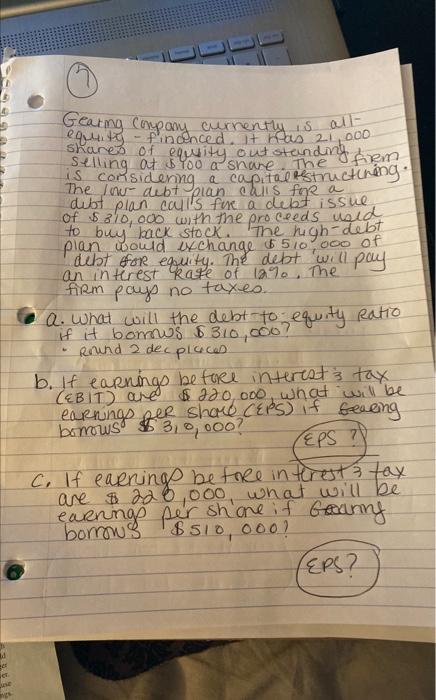 7
Gearing Company currently is all-
equity-financed. It has 21,000
shares of equity outstanding,
selling at $100 a share. The firm
is considering a capital restructuring.
The low-debt plan calls for a
debt plan calls for a debt issue
of $310,000 with the proceeds used
to buy back stock. The high-debt
plan would exchange $510,000 of
debt for equity. The debt will pay
an interest rate of 12%. The
firm pays no taxes.
a. What will the debt-to-equity ratio
if it borrows $310,000?
• Round 2 dec places
b. If earnings before interest & tax
(EBIT) are $220,000, what will be
earnings per share (EPS) if Gearing
borrows $310,000?
EPS?
c. If earnings before interest & tax
are $220,000, what will be
earnings per share if Gearing
borrows $510,000?
EPS?